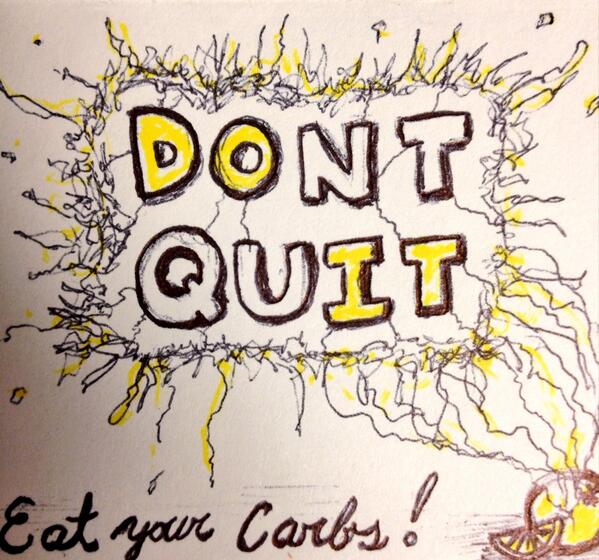 DONT
QUIT
Eat your Carbs!